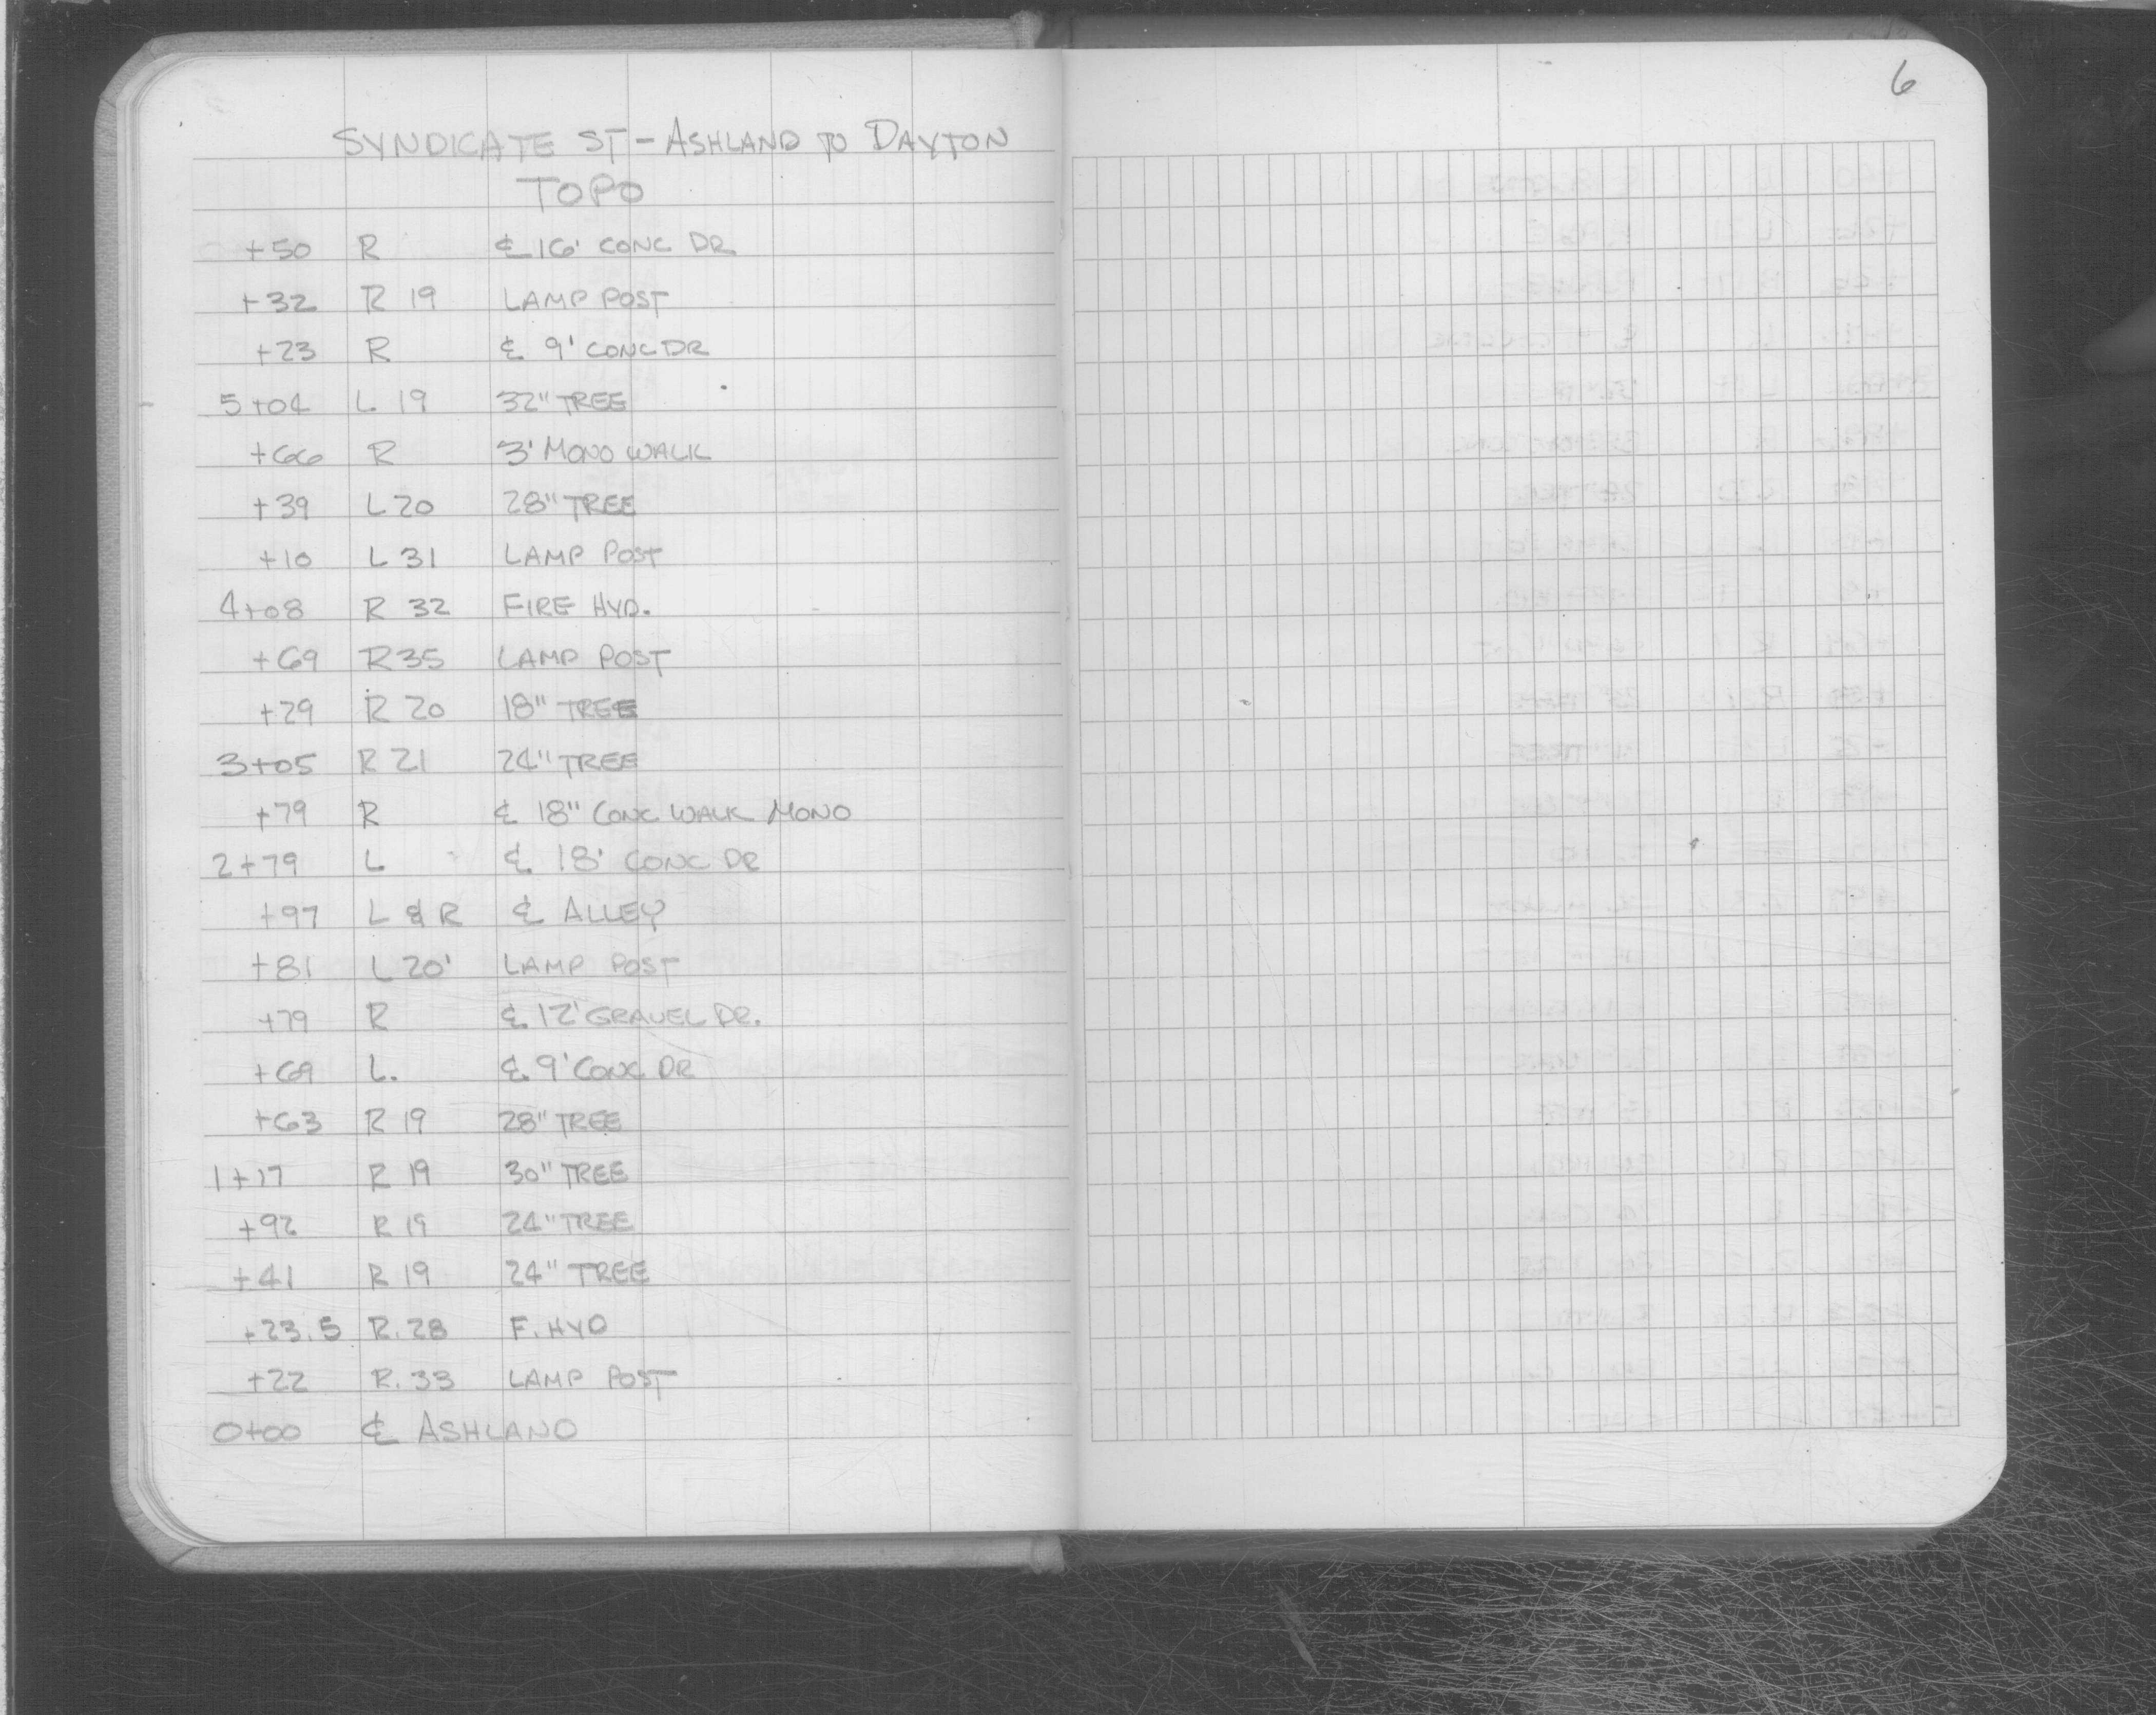 6
SYNDICATE ST - ASHLAND TO DAYTON
TOPO
+50 R ℄ 16' CONC DR
+32 R 19 LAMP POST
+23 R ℄ 9' CONC DR
5+04 L 19 32" TREE
+66 R 3' MONO WALK
+39 L 20 28" TREE
+10 L 31 LAMP POST
4+08 R 32 FIRE HYD.
+69 R 35 LAMP POST
+29 R 20 18" TREE
3+05 R 21 24" TREE
+79 R ℄ 18" CONC WALK MONO
2+79 L ℄ 18' CONC DR
+97 L & R ℄ ALLEY
+81 L 20' LAMP POST
+79 R ℄ 12' GRAVEL DR.
+69 L. ℄ 9' CONC DR
+63 R 19 28" TREE
1+17 R 19 30" TREE
+92 R 19 24" TREE
+41 R 19 24" TREE
+23.5 R. 28 F. HYD
+22 R. 33 LAMP POST
0+00 ℄ ASHLAND